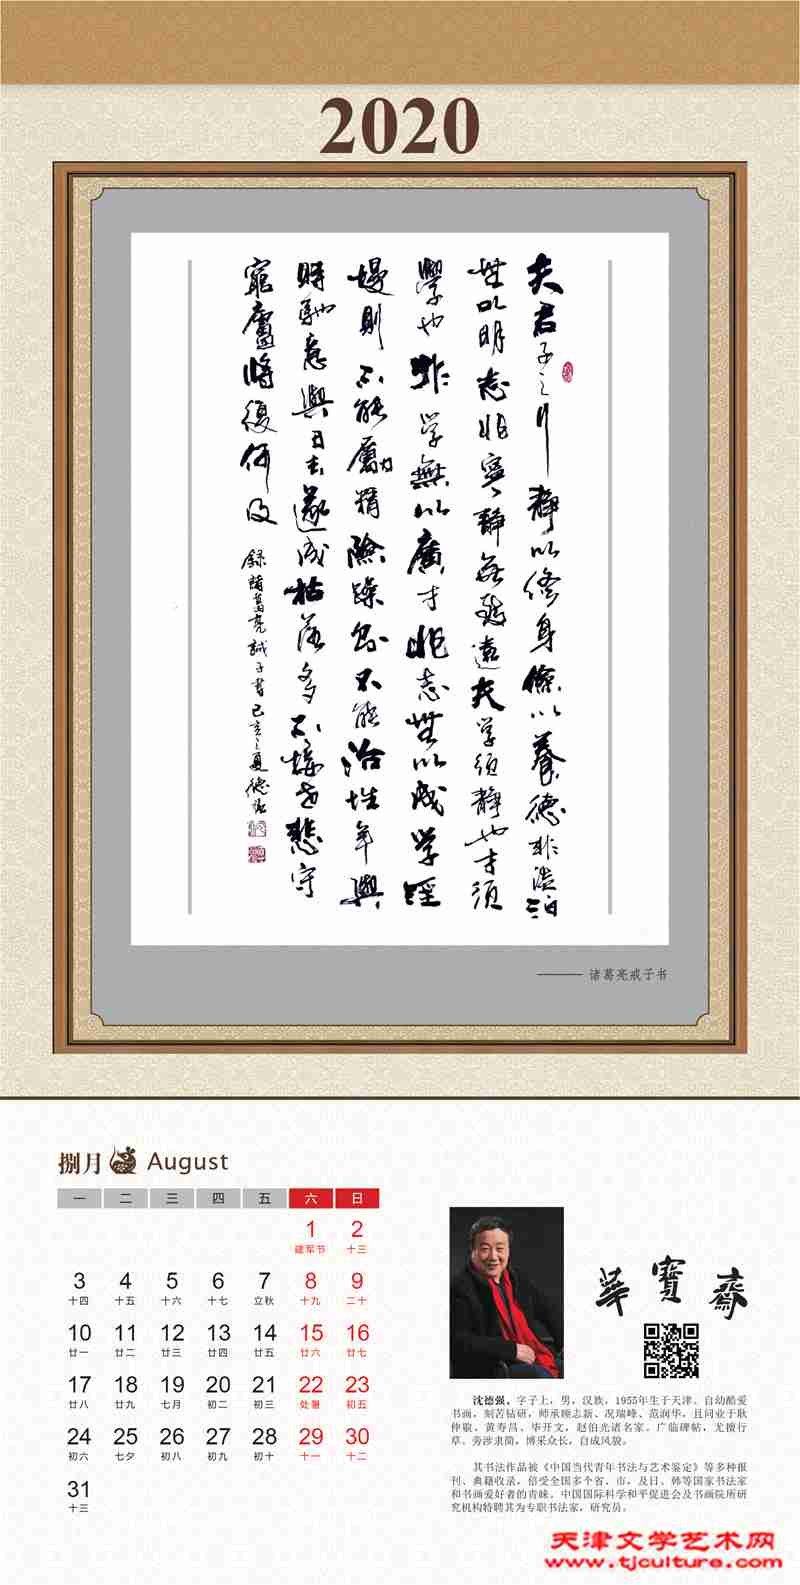 2020
夫君子之行靜以修身儉以養德非澹泊
無以明志非寧靜無致遠夫学須靜也才須
學也非学無以廣才非志無以成学淫
慢則不能勵精險躁則不能治性年與
時馳意與日去遂成枯落多不接世悲守
窮廬將復何及
録諸葛亮誡子書己亥之夏德強
——— 诸葛亮戒子书
捌月 August
一 二 三 四 五 六 日
1 2
建军节 十三
3 4 5 6 7 8 9
十四 十五 十六 十七 立秋 十九 二十
10 11 12 13 14 15 16
廿一 廿二 廿三 廿四 廿五 廿六 廿七
17 18 19 20 21 22 23
廿八 廿九 七月 初二 初三 处暑 初五
24 25 26 27 28 29 30
初六 七夕 初八 初九 初十 十一 十二
31
十三
華寶齋
沈德强，字子上，男，汉族，1955年生于天津。自幼酷爱
书画，刻苦钻研，师承顾志新、况瑞峰、范润华，且问业于耿
仲敭、黄寿昌、毕开文，赵伯光诸名家。广临碑帖，尤擅行
草。旁涉隶简，博采众长，自成风貌。
其书法作品被《中国当代青年书法与艺术鉴定》等多种报
刊、典籍收录，倍受全国多个省、市，及日、韩等国家书法家
和书画爱好者的青睐。中国国际科学和平促进会及书画院所研
究机构特聘其为专职书法家，研究员。
天津文学艺术网
www.tjculture.com